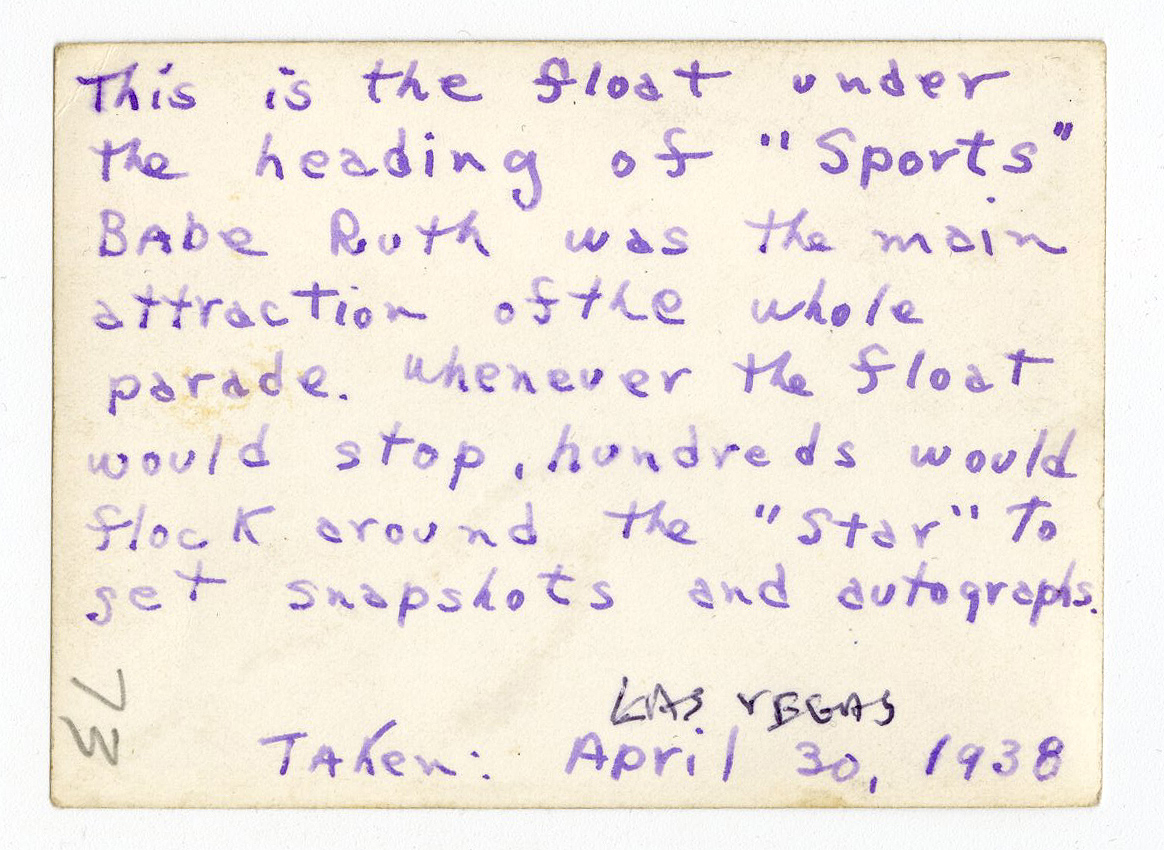 This is the float under
the heading of "Sports"
BAbe Ruth was the main
attraction of the whole
parade. Whenever the float
would stop, hundreds would
flock around the "Star" To
get snapshots and autographs.
LAS VEGAS
TAken: April 30, 1938
73